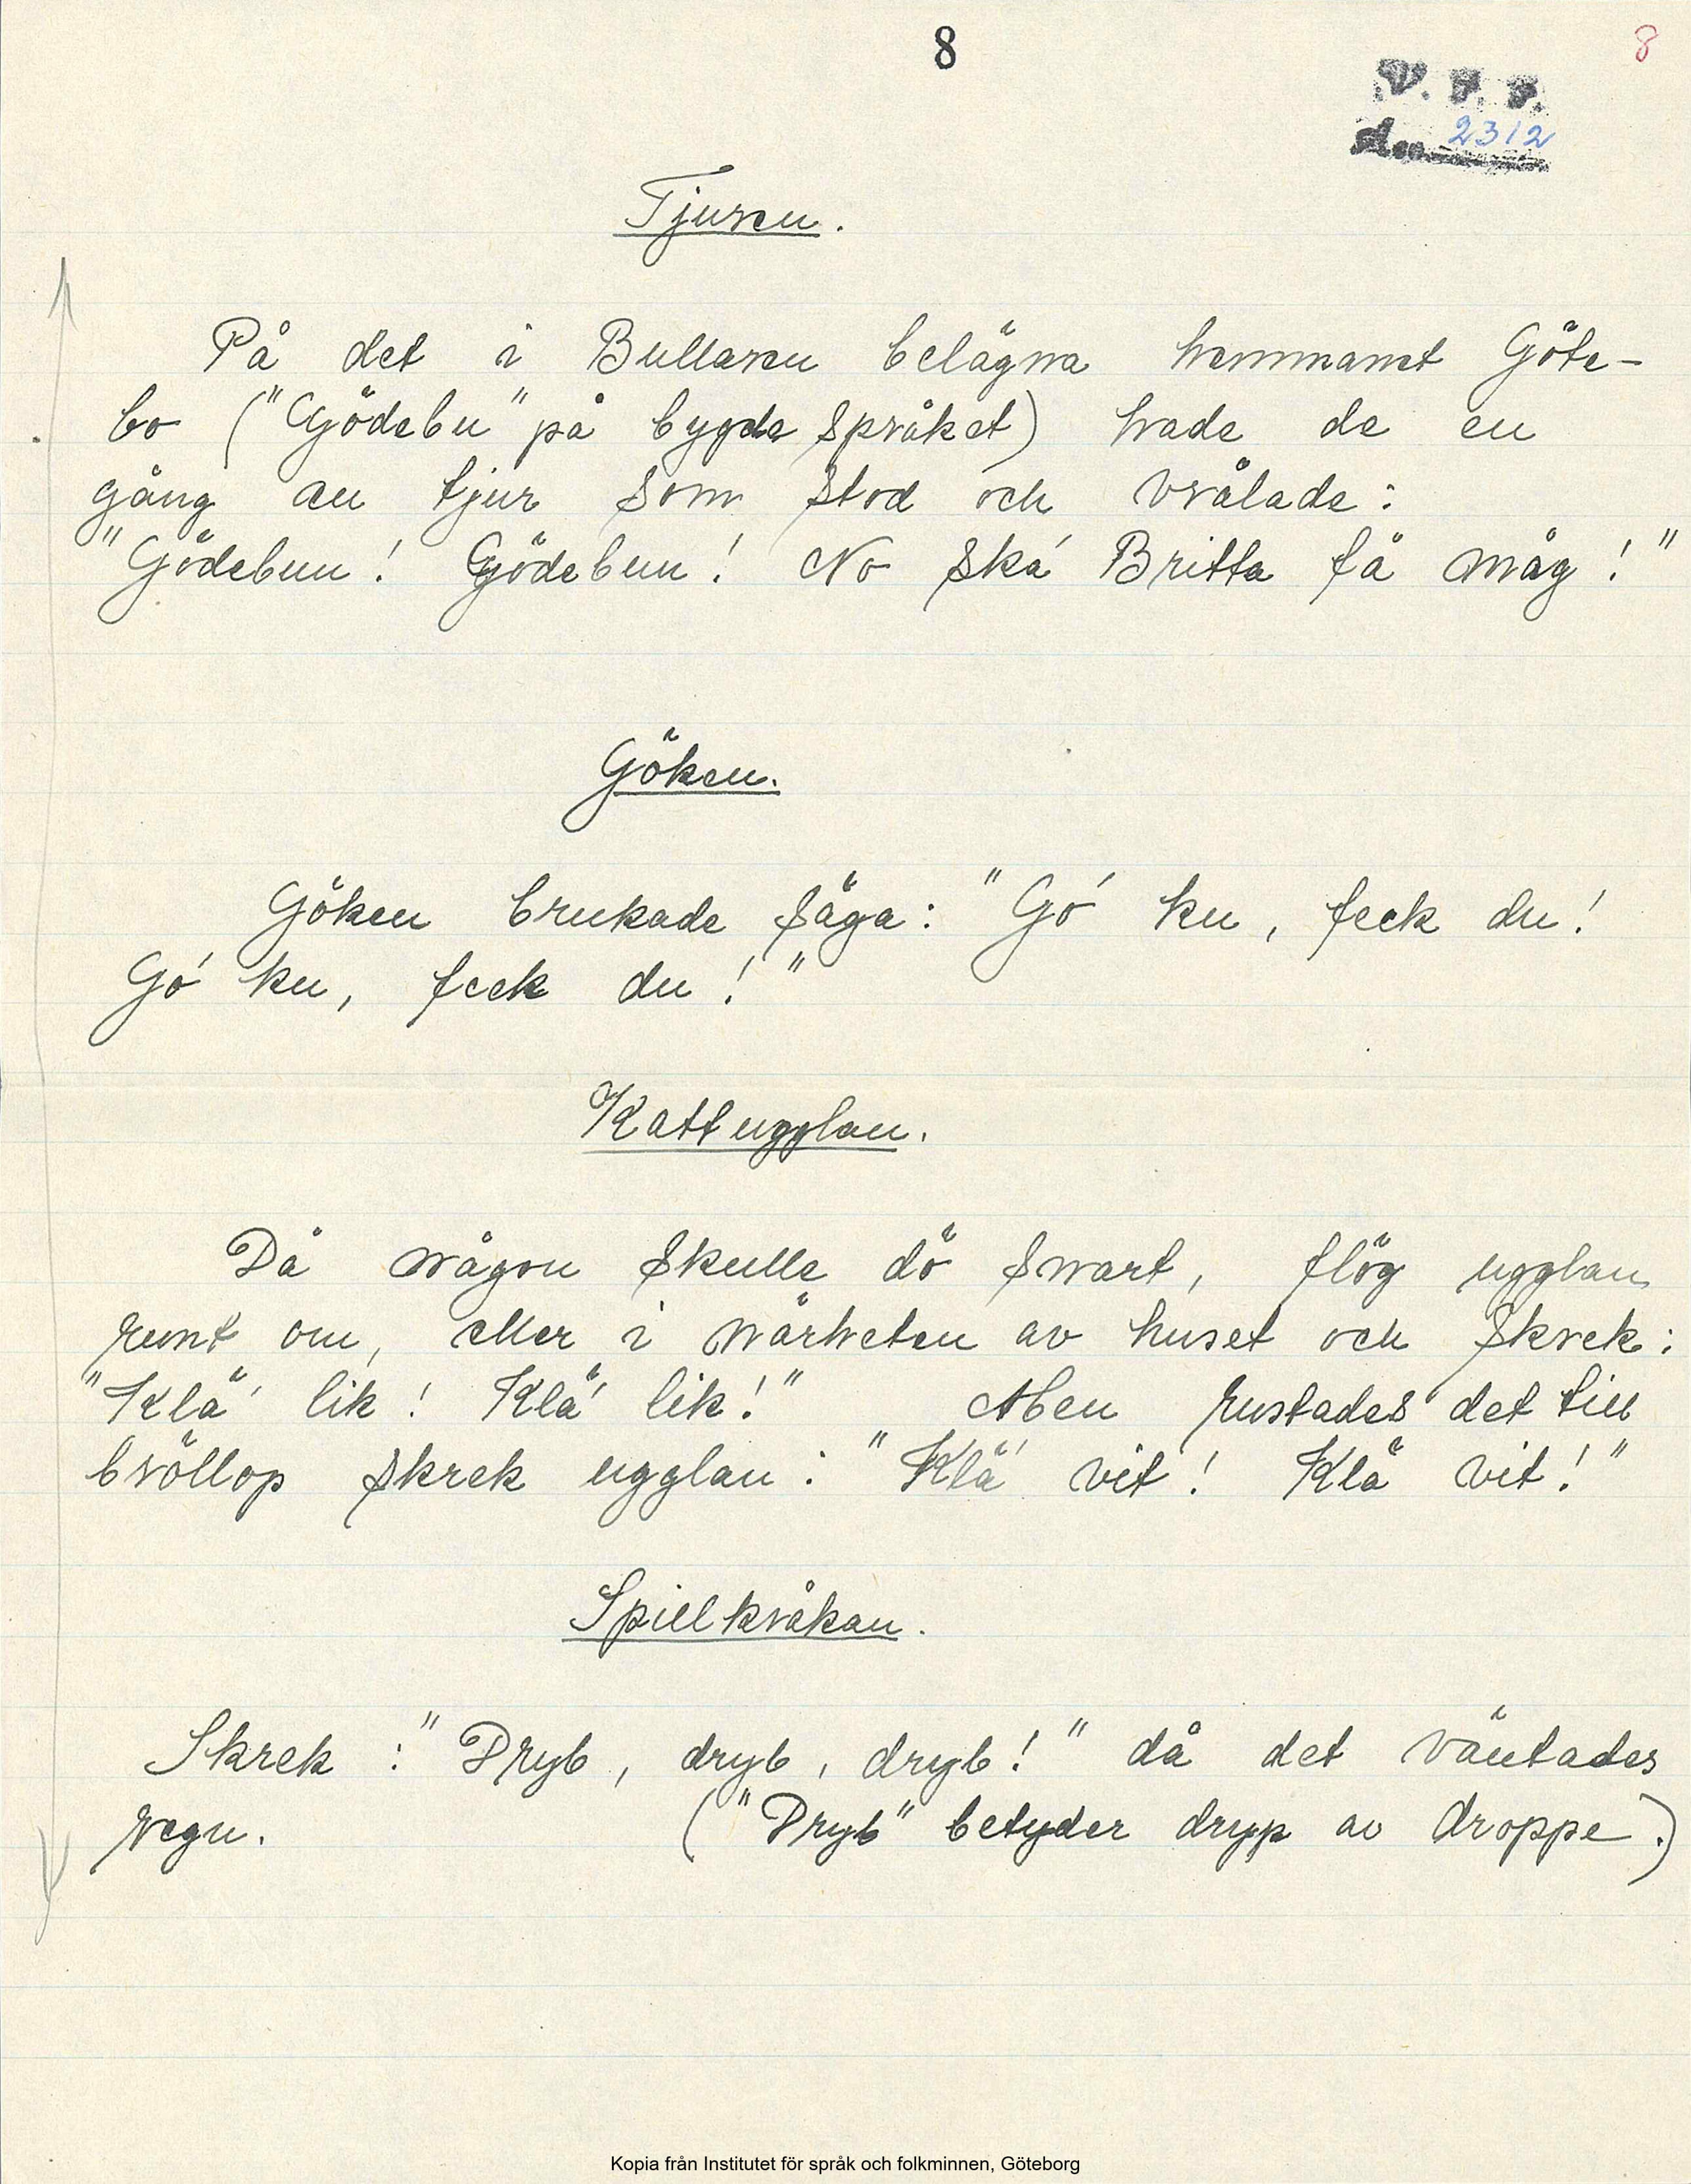 8
8
V. F. F.
2312
Tjuren.
På det i Bullaren belägna hemmanet Göte-
bo ("Gödebu" på bygdespråket) hade de en
gång en tjur som stod och vrålade:
"Gödebuu! Gödebuu! No ska' Britta få måg!"
Göken.
Göken brukade säga: "Go' ku, feck du!
Go' ku, feck du!"
Kattugglan.
Då någon skulle dö snart, flög ugglan
runt om, eller i närheten av huset och skrek:
"Klä' lik! Klä' lik!" Men rustades det till
bröllop skrek ugglan: "Klä' vit! Klä vit!"
Spillkråkan.
Skrek: "Dryb, dryb, dryb!" då det väntades
regn. ("Dryb" betyder dryp av droppe.)
Kopia från Institutet för språk och folkminnen, Göteborg